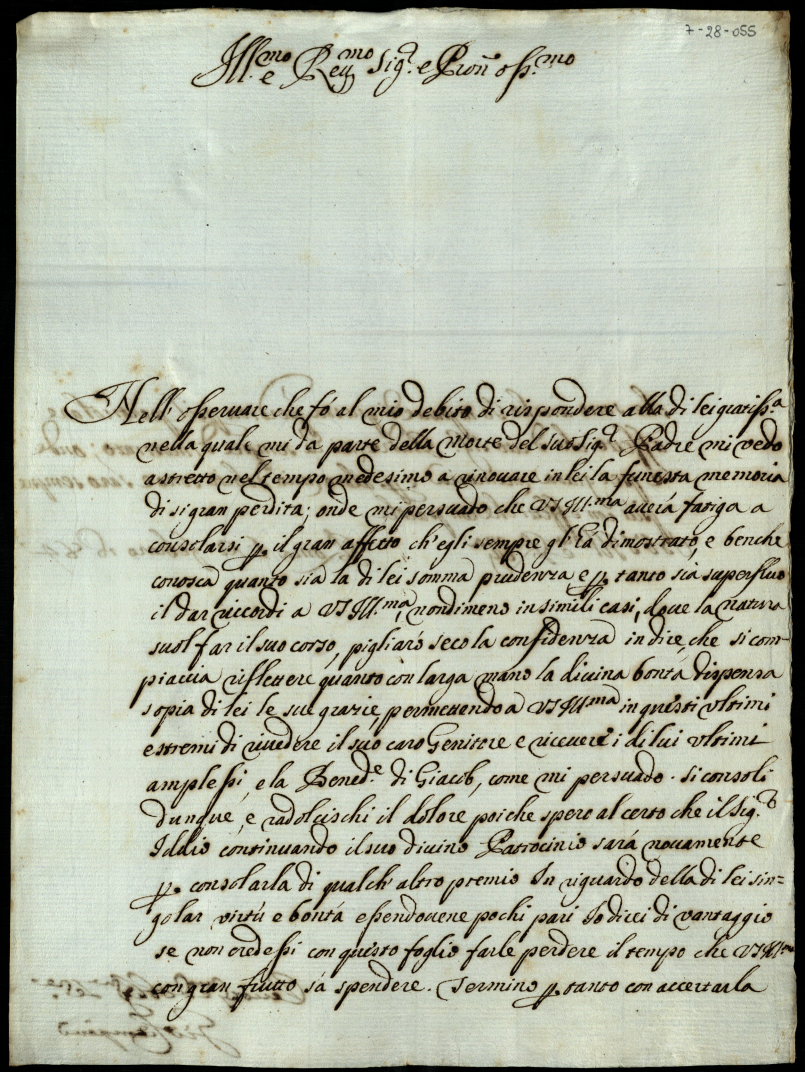 7-28-055
Ill.mo e Reu.mo Sig.r e Pron oss.mo
Nell' osseruare che fò al mio debito di rispondere alla di lei gratiss.a
nella quale mi dà parte della morte del suo Sig.r Padre mi vedo
astretto nel tempo medesimo a rinouare in lei la funesta memoria
di si gran perdita; onde mi persuado che VS Ill.ma auerà fatiga a
consolarsi p. il gran affetto ch'egli sempre gl'hà dimostrato, e benche
conosca quanto sia la di lei somma prudenza e p. tanto sia superfluo
il dar ricordi a VS Ill.ma, nondimeno in simili casi, doue la natura
suol far il suo corso, pigliarò seco la confidenza in dire, che si com-
piaccia riflettere quanto con larga mano la diuina bontà dispensa
sopra di lei le sue grazie, permettendo a VS Ill.ma in questi vltimi
estremi di riuedere il suo caro Genitore e riceuere i di lui vltimi
amplessi, e la Bened.e di Giacob, come mi persuado. si consoli
dunque, e radolcischi il dolore poiche spero al certo che il Sig.r
Iddio continuando il suo diuino Patrocinio sarà nouamente
p. consolarla di qualch' altro premio In riguardo della di lei sin=
golar virtù e bontà essendouene pochi pari Io direi di vantaggio
se non credessi con questo foglio farle perdere il tempo che VS Ill.ma
con gran frutto sà spendere. Termino p. tanto con accertarla